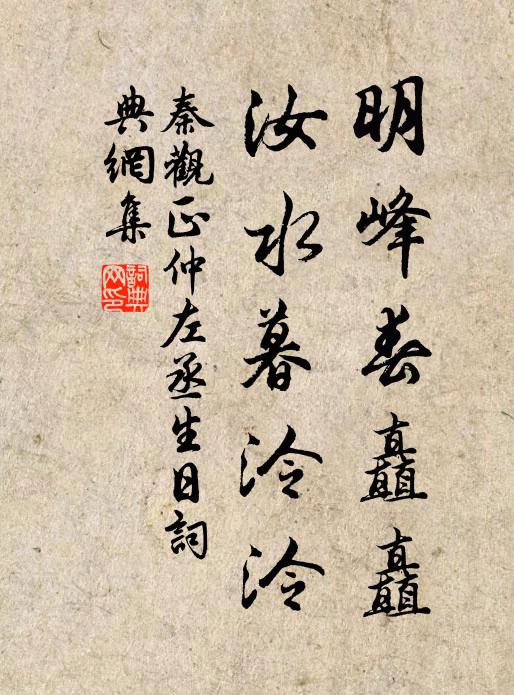 明峰春矗矗
汝水暮泠泠
秦觀正仲左丞生日詞
典網集
詞典網印